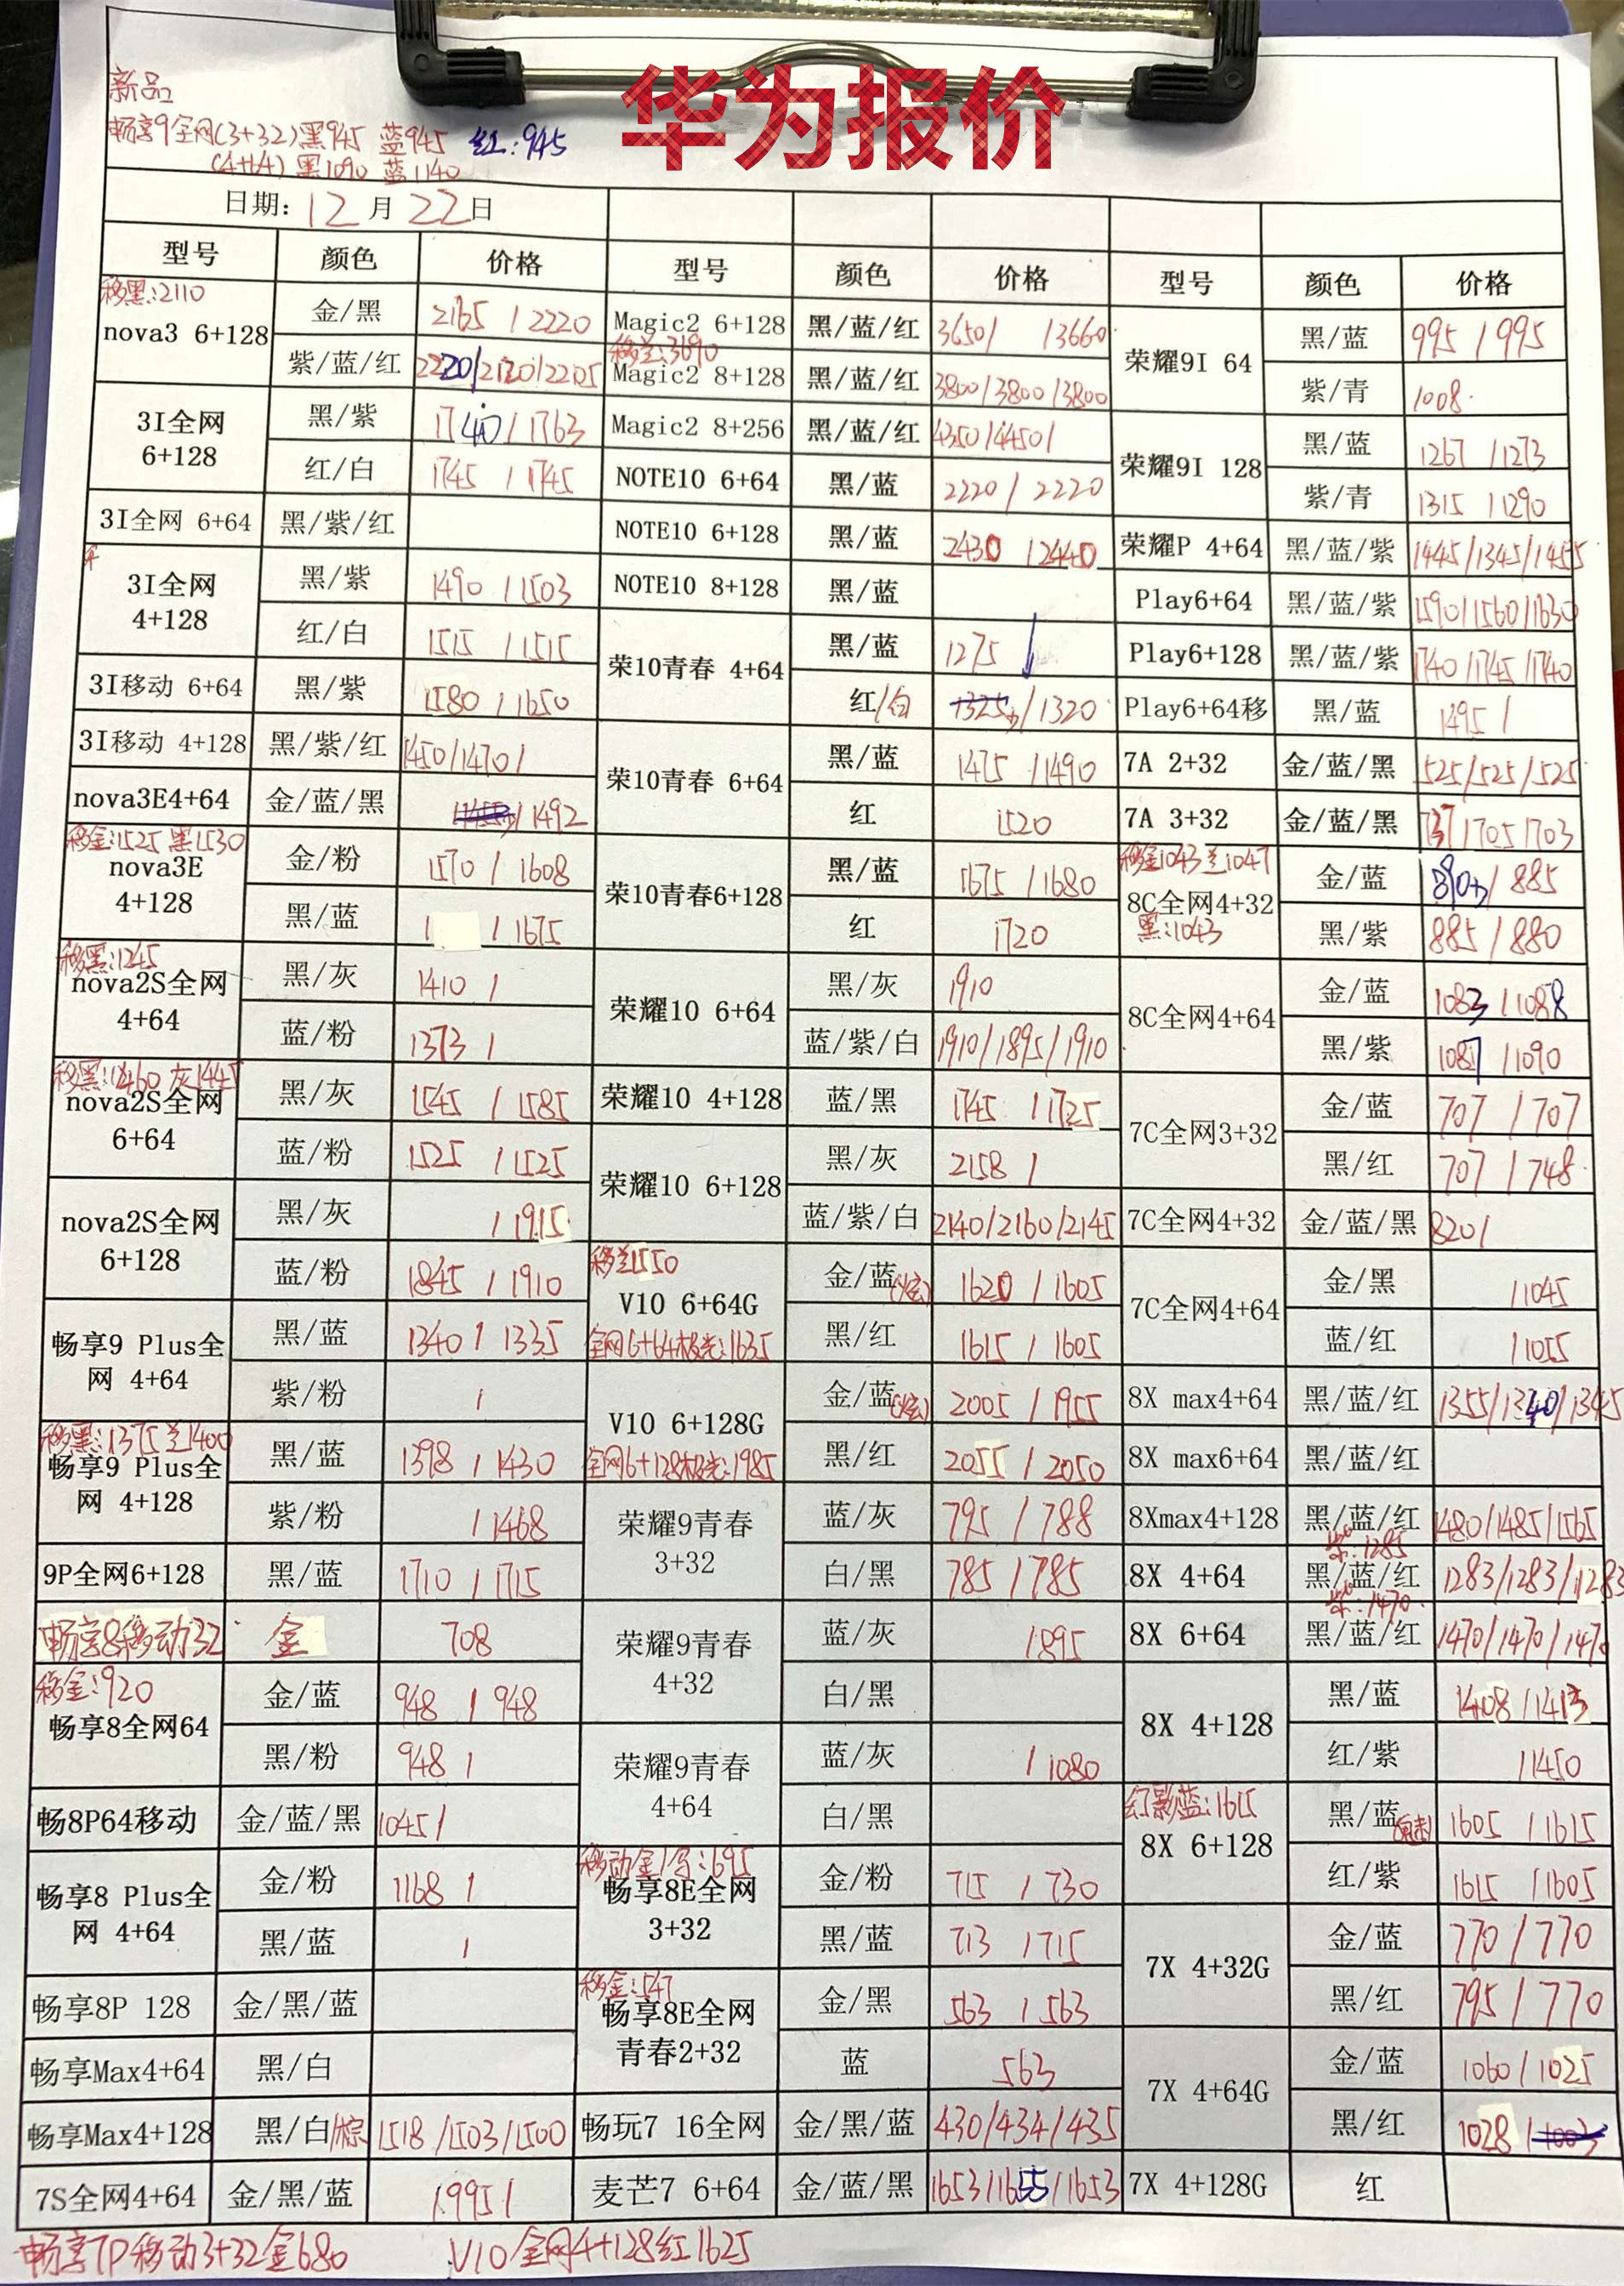 华为报价
新品
畅享9全网(3+32)黑945 蓝945 红:945
(4+64) 黑1090 蓝1140
日期: 12 月 22 日
型号 颜色 价格 型号 颜色 价格 型号 颜色 价格
移黑:2110
nova3 6+128 金/黑 2165 / 2220
紫/蓝/红 2220/2120/2205
3I全网
6+128
黑/紫 1740 / 1763
红/白 1745 / 1745
3I全网 6+64 黑/紫/红
3I全网
4+128
黑/紫 1490 / 1503
红/白 1515 / 1515
3I移动 6+64 黑/紫 1580 / 1650
3I移动 4+128 黑/紫/红 1450/1470/
nova3E4+64 金/蓝/黑 / 1492
移金:1525 黑1530
nova3E
4+128
金/粉 1570 / 1608
黑/蓝 / 1675
移黑:1245
nova2S全网
4+64
黑/灰 1410 /
蓝/粉 1373 /
移黑:1460 灰1445
nova2S全网
6+64
黑/灰 1545 / 1585
蓝/粉 1525 / 1525
nova2S全网
6+128
黑/灰 / 1915
蓝/粉 1845 / 1910
畅享9 Plus全
网 4+64
黑/蓝 1340 / 1335
紫/粉 /
移黑:1375 兰1400
畅享9 Plus全
网 4+128
黑/蓝 1398 / 1430
紫/粉 / 1468
9P全网6+128 黑/蓝 1710 / 1715
畅享8移动32 金 708
移金:920
畅享8全网64
金/蓝 948 / 948
黑/粉 948 /
畅8P64移动 金/蓝/黑 1045/
畅享8 Plus全
网 4+64
金/粉 1168 /
黑/蓝 /
畅享8P 128 金/黑/蓝
畅享Max4+64 黑/白
畅享Max4+128 黑/白/棕 1518/1503/1500
7S全网4+64 金/黑/蓝 1995/
Magic2 6+128 黑/蓝/红 3650/ /3660
移兰:3690
Magic2 8+128 黑/蓝/红 3800/3800/3800
Magic2 8+256 黑/蓝/红 4350/4450/
NOTE10 6+64 黑/蓝 2220 / 2220
NOTE10 6+128 黑/蓝 2430 / 2440
NOTE10 8+128 黑/蓝
荣10青春 4+64
黑/蓝 1275
红/白 1325/1320
荣10青春 6+64
黑/蓝 1475 / 1490
红 1520
荣10青春6+128
黑/蓝 1675 / 1680
红 1720
荣耀10 6+64
黑/灰 1910
蓝/紫/白 1910/1895/1910
荣耀10 4+128 蓝/黑 1745 / 1725
荣耀10 6+128
黑/灰 2158 /
蓝/紫/白 2140/2160/2145
移兰1550
V10 6+64G
全网6+64极光:1635
金/蓝(炫) 1620 / 1605
黑/红 1615 / 1605
V10 6+128G
全网6+128极光:1985
金/蓝(炫) 2005 / 1955
黑/红 2055 / 2050
荣耀9青春
3+32
蓝/灰 795 / 788
白/黑 785 / 785
荣耀9青春
4+32
蓝/灰 /895
白/黑
荣耀9青春
4+64
蓝/灰 / 1080
白/黑
移动金/:695
畅享8E全网
3+32
金/粉 715 / 730
黑/蓝 713 / 715
移金:547
畅享8E全网
青春2+32
金/黑 563 / 563
蓝 563
畅玩7 16全网 金/黑/蓝 430/434/435
麦芒7 6+64 金/蓝/黑 1653/1655/1653
荣耀9I 64
黑/蓝 995 / 995
紫/青 1008
荣耀9I 128
黑/蓝 1267 / 1273
紫/青 1315 / 1290
荣耀P 4+64 黑/蓝/紫 1445/1345/1455
Play6+64 黑/蓝/紫 1590/1560/1630
Play6+128 黑/蓝/紫 1740/1745/1740
Play6+64移 黑/蓝 1495 /
7A 2+32 金/蓝/黑 525/525/525
7A 3+32 金/蓝/黑 737/705/703
移金1043 兰1047
8C全网4+32
黑:1043
金/蓝 890/885
黑/紫 885 / 880
8C全网4+64
金/蓝 1083 / 1088
黑/紫 1087 / 1090
7C全网3+32
金/蓝 707 / 707
黑/红 707 / 748
7C全网4+32 金/蓝/黑 820/
7C全网4+64
金/黑 / 1045
蓝/红 / 1055
8X max4+64 黑/蓝/红 1355/1340/1345
8X max6+64 黑/蓝/红
8Xmax4+128 黑/蓝/红 1480/1485/1565
紫:1285
8X 4+64 黑/蓝/红 1283/1283/1283
紫:1470
8X 6+64 黑/蓝/红 1470/1470/1470
8X 4+128
黑/蓝 1408 / 1413
红/紫 / 1450
幻影蓝:1615
8X 6+128
黑/蓝(魅) 1605 / 1615
红/紫 1615 / 1605
7X 4+32G
金/蓝 770 / 770
黑/红 795 / 770
7X 4+64G
金/蓝 1060 / 1025
黑/红 1028 / 1003
7X 4+128G 红
畅享7P移动3+32金680 V10全网4+128红1625